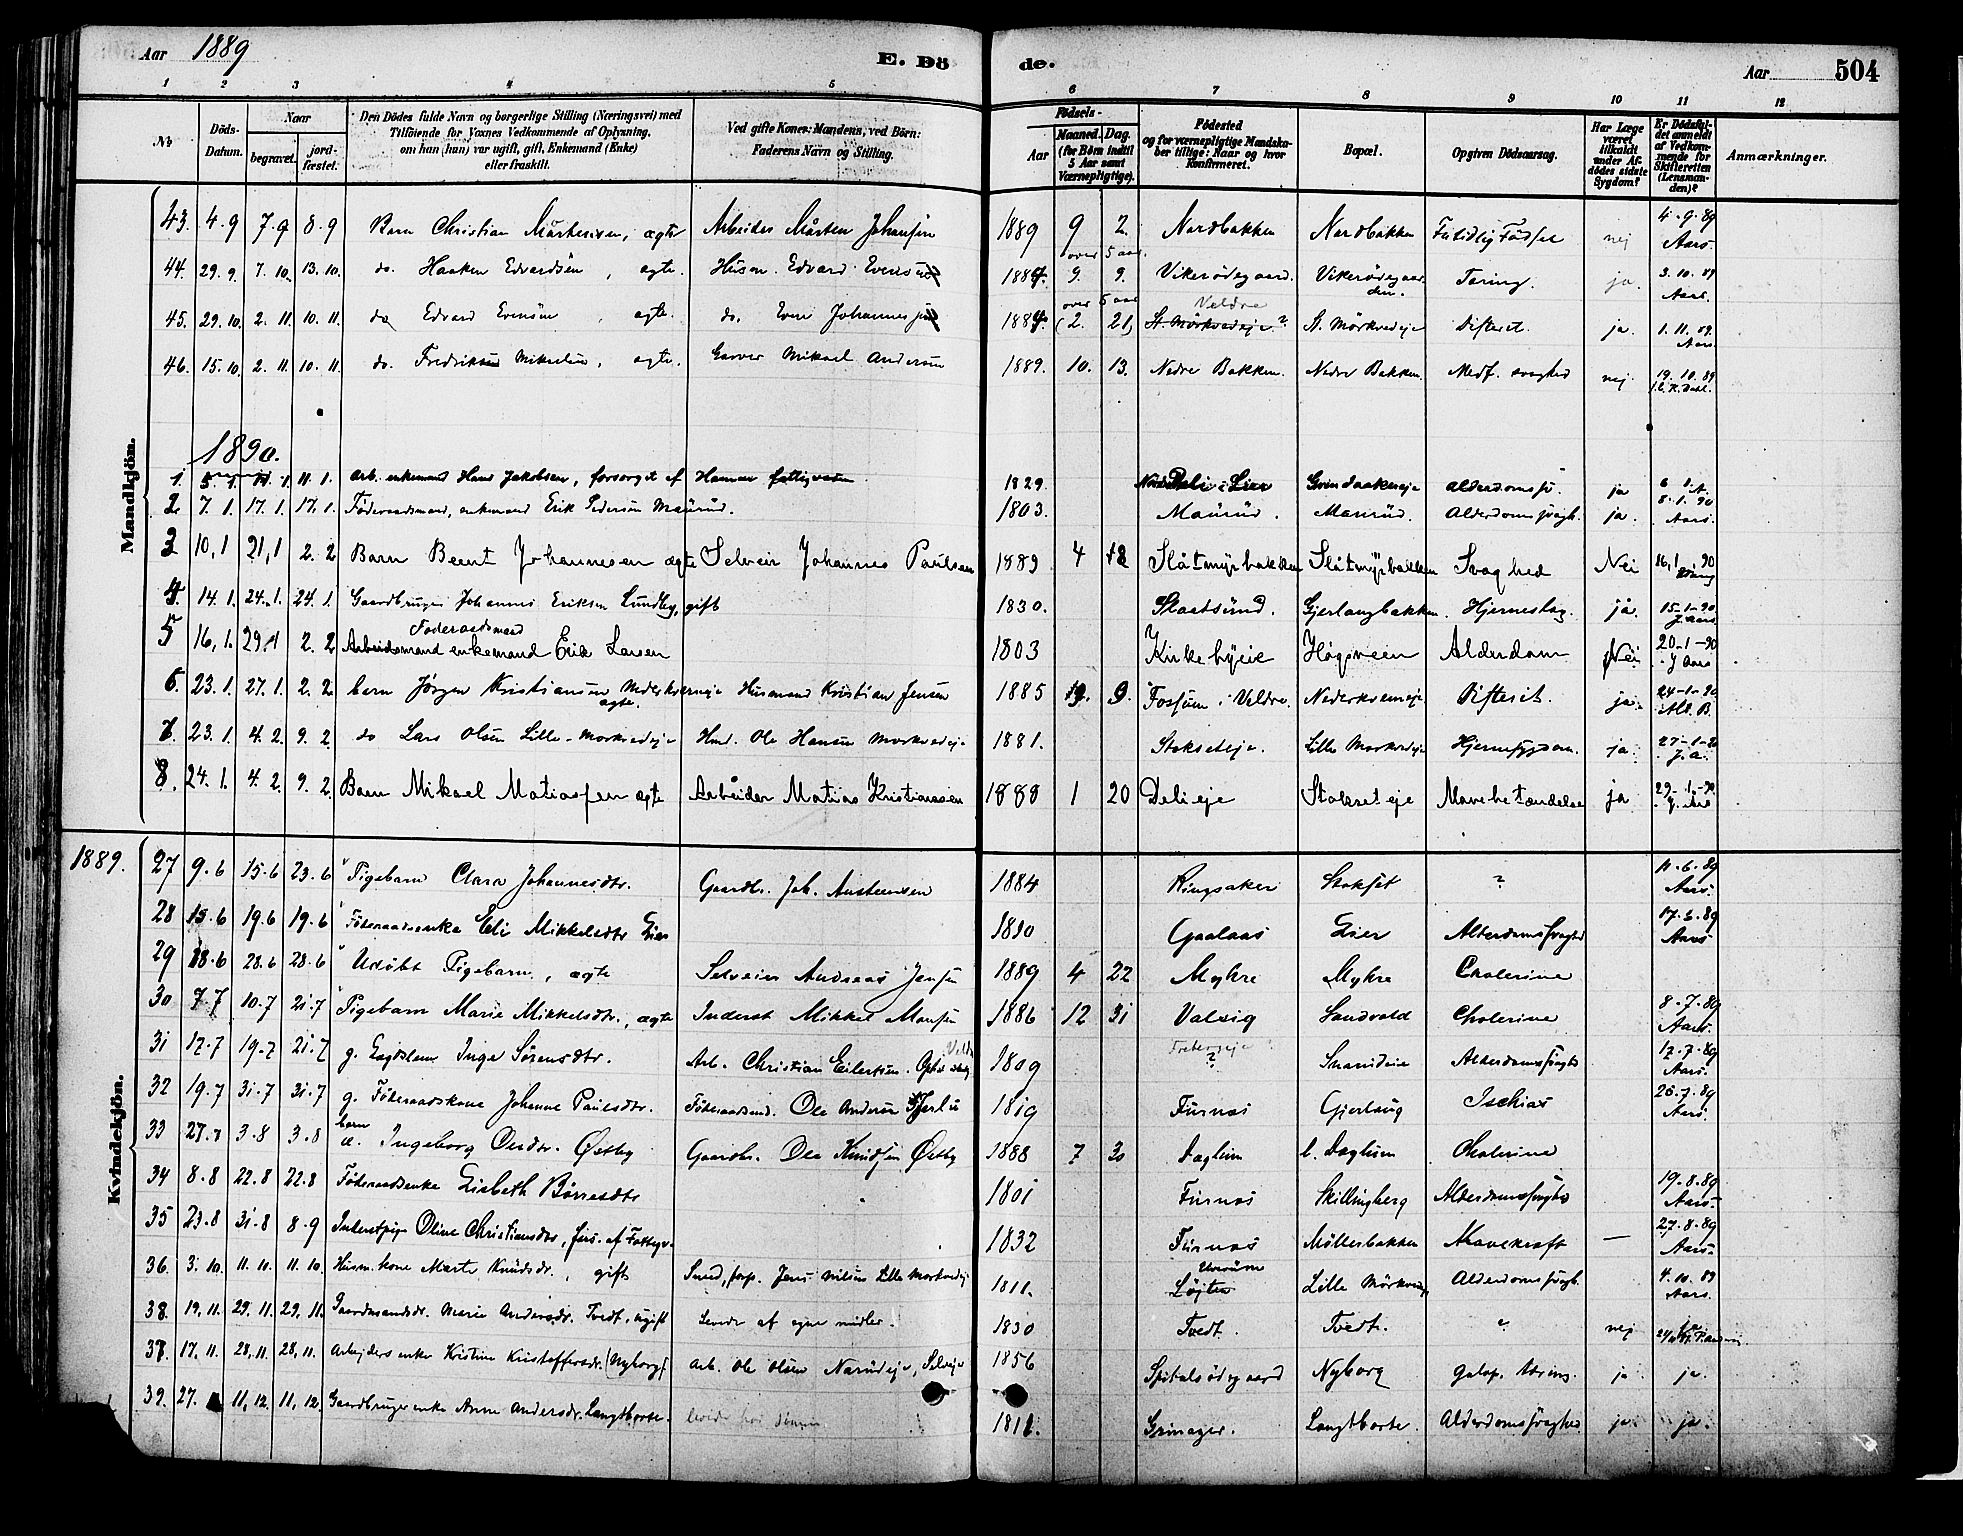 Aar 1889 E. Dö de. Aar 504
1 2 3 4 5 6 7 8 9 10 11 12
No Döds-Datum. Naar begravet. jord-fæstet. Den Dödes fulde Navn og borgerlige Stilling (Næringsvei) med Tilföiende for Voxnes Vedkommende af Oplysning, om han (hun) var ugift, gift, Enkemand (Enke) eller fraskilt. Ved gifte Koner: Mandens, ved Börn: Faderens Navn og Stilling. Födsels- Aar Maaned. Dag. (for Börn indtil 5 Aar samt Værnepligtige). Födested og for værnepligtige Mandskaber tillige: Naar og hvor Konfirmeret. Bopæl. Opgiven Dödsaarsag. Har Læge været tilkaldt under Afdödes sidste Sygdom? Er Dödsfaldet anmeldt af Vedkommende for Skifteretten (Lensmanden)? Anmærkninger.
Mandkjön.
43. 4.9 7.9 8.9 Barn Christian Mårtensen, ægte Arbeider Mårten Johansen 1889 9 2. Nordbakken Nordbakken Fødsel nej 4-9-89 Aars.
44. 29.9. 7.10. 13.10. do. Haaken Edvardsen, ægte. Husm. Edvard Evensen 1884. over 5 aar 9. 9. Vikerødegaard. Vikerødegaarden. Tæring. ja. 3.10.89 Aars.
45. 29.10. 2.11. 10.11. do Edvard Evensen, ægte. do. Even Johannessen 1884 over 5 aar (2. 21) Veldre St. Mörkvedeje? St. Mörkvedeje Difterit. ja. 1.11.89. Aars
46. 15.10. 2.11. 10.11. do. Fredrik Mikaelsen, ægte. Garver Mikael Andersen 1889. 10. 13. Nedre Bakken. Nedre Bakken. Medf. svaghed nej. 19.10.89
1890.
1. 5.1. 11.1. 11.1. Arb. enkemand Hans Jakobsen, forsørget af Hamar fattigvæsen 1829. Lier Alderdomssv. ja 6 1 A.
2. 7.1. 17.1. 17.1. Føderaadsmand, enkemand Erik Pedersen Maurud. 1803. Maurud. Maurud. Alderdomssvagh. ja. 8.1.90 Aars.
3 10,1 21,1 2.2 Barn Bernt Johannesen ægte Selveier Johannes Paulsen 1889 4 Slåtmyrbakken Slåtmyrbakken Svaghed Nei 16,1,90
4. 14.1. 24.1. 24.1. Gaardbruger Johannes Eriksen Lundby, gift 1830. Staatsund. Gjerlaugbakken. Hjerneslag. ja. 15-1-90 J. Aars
5 16,1. 29.1 2.2 Føderaadsmand Arbeidsmand enkemand Erik Larsen 1803 Kirkebyeie Høgsveen Alderdom Nei 20-1-90 J Aars
6. 23.1. 27.1. 2.2. barn Jørgen Kristiansen Nederkverneje ægte. Husmand Kristian Jensen 1885 9. Fossum i Veldre. Nederkverneje. Difterit. ja. 24-1-90
7. 23.1. 4.2. 9.2. do Lars Olsen Lille-Morkvedeje Husm. Ole Hansen Morkvedeje 1881. Stokseteje. Lille Morkvedeje Hjernesygdom. ja. 27-1-90 J.A.
8. 24.1. 4.2. 9.2. Barn Mikael Matiassen ægte Arbeider Matias Kristianssen 1888 1 20 Delieje Stokseteje Mavebetændelse ja 29-1-90 J. Aars
Kvindekjön.
1889. 27 9.6 15.6 23.6 Pigebarn Clara Johannesdtr. Gaardbr. Joh. Austensen 1884 Ringsaker Stokset ? 11-6-89 Aars.
28 15.6 19.6 19.6 Føderaadsenke Eli Mikkelsdtr Lier 1810 Gaalaas Lier Alderdomssvaghed 17-6-89 Aars
29 28.6 28.6 Udøbt Pigebarn, ægte Selveier Andreas Jensen 1889 4 22 Myhre Myhre Cholerine
30 7.7 10.7 21.7 Pigebarn Marie Mikkelsdtr., ægte Inderst Mikkel Monsen 1886 12 31 Valsig Sandvold Cholerine 8-7-89 Aars.
31 17.7 19.7 21.7 g. Inge Sørensdtr. Arb. Christian Eilertsen. 1809 ? Alderdomssvaghed 17-7-89 Aars.
32 19.7 31.7 31.7 g. Føderaadskone Johanne Paulsdtr. Føderaadsmd. Ole Andersen 1819 Furnæs Gjerlaug Ischias 26-7-89 Aars.
33 27.7 3.8 3.8 barn Ingeborg Olsdtr. Østby Gaardbr. Ole Knudsen Østby 1888 7 30 Daglien Daglien Cholerine
34 8.8 22.8 22.8 Føderaadsenke Lisbeth Børresdtr 1801 Furnæs Skillingberg Alderdomssvaghed 19-8-89 Aars.
35 23.8 31.8 8.9 Inderstpige Oline Christiansdtr, fors. af Fattigv. 1832 Furnæs Møllerbakken Mavekræft — 27-8-89 Aars
36. 3.10. 11.10. 11.10 Husm.kone Marte Knudsdr., gift Smed, Jens Nilsen Lille Morkvedeje 1811. Løjten Lille Mörkvedeje Alderdomssvagh. 4.10.89 Aars.
38. 19.11. 29.11. 29.11. Gaardmandsdr. Marie Andersdr. Tvedt, ugift Levede af egne midler. 1830 Tvedt. Tvedt. ? nej
37. 17.11. 28.11. 28.11. Arbejders enke Kristine Kristoffersdr. (Nyborg) Arb. Ole Olsen 1856 Spitalsødegaard Nyborg galop. tæring. ja ja.
39. 27. 11.12. 11.12. Gaardbruger enke Anne Andersdr. Langtborte. 1811. Grinager. Langtborte. Alderdomssvaghed ja. ja.